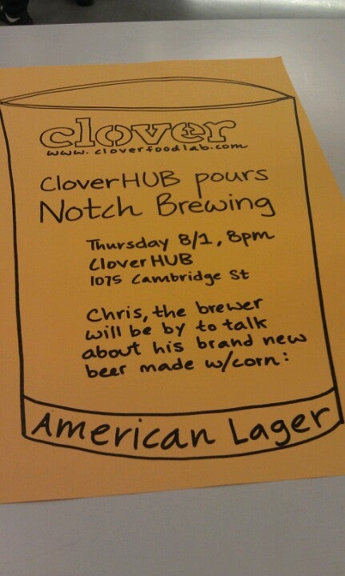 clover
www.cloverfoodlab.com
CloverHUB pours
Notch Brewing
Thursday 8/1, 8pm
CloverHUB
1075 Cambridge St
Chris, the brewer
will be by to talk
about his brand new
beer made w/corn:
American Lager